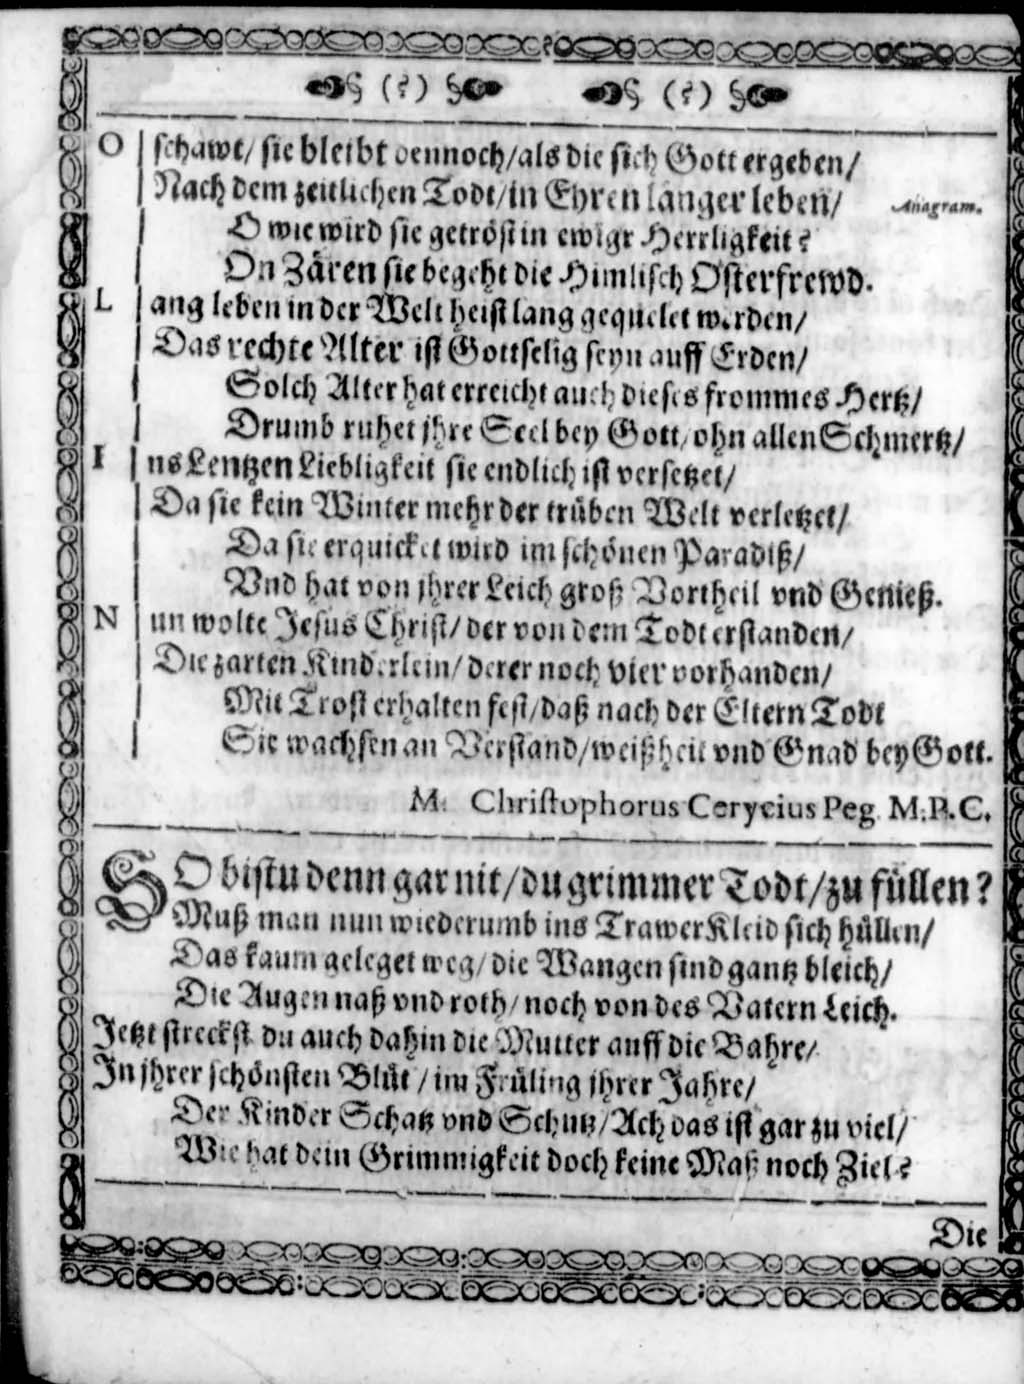 (?) (?)
O schawt/ sie bleibt dennoch/als die sich Gott ergeben/
Nach dem zeitlichen Todt/in Ehren länger leben/ Anagram.
O wie wird sie getröst in ewigr Herrligkeit?
On Zären sie begeht die Himlisch Osterfrewd.
L ang leben in der Welt heist lang gequelet werden/
Das rechte Alter ist Gottselig seyn auff Erden/
Solch Alter hat erreicht auch dieses frommes Hertz/
Drumb ruhet jhre Seel bey Gott/ohn allen Schmertz/
I ns Lentzen Liebligkeit sie endlich ist versetzet/
Da sie kein Winter mehr der trüben Welt verletzet/
Da sie erquicket wird im schönen Paradiß/
Vnd hat von jhrer Leich groß Vortheil vnd Genieß.
N un wolte Jesus Christ/ der von dem Todt erstanden/
Die zarten Kinderlein/ derer noch vier vorhanden/
Mit Trost erhalten fest/daß nach der Eltern Todt
Sie wachsen an Verstand/weißheit vnd Gnad bey Gott.
M. Christophorus Cerycius Peg. M.P.C.
SO bistu denn gar nit/du grimmer Todt/zu füllen?
Muß man nun wiederumb ins TrawerKleid sich hüllen/
Das kaum geleget weg/ die Wangen sind gantz bleich/
Die Augen naß vnd roth/ noch von des Vatern Leich.
Jetzt streckst du auch dahin die Mutter auff die Bahre/
In jhrer schönsten Blüt / im Früling jhrer Jahre/
Der Kinder Schatz vnd Schutz/Ach das ist gar zu viel/
Wie hat dein Grimmigkeit doch keine Maß noch Ziel?
Die